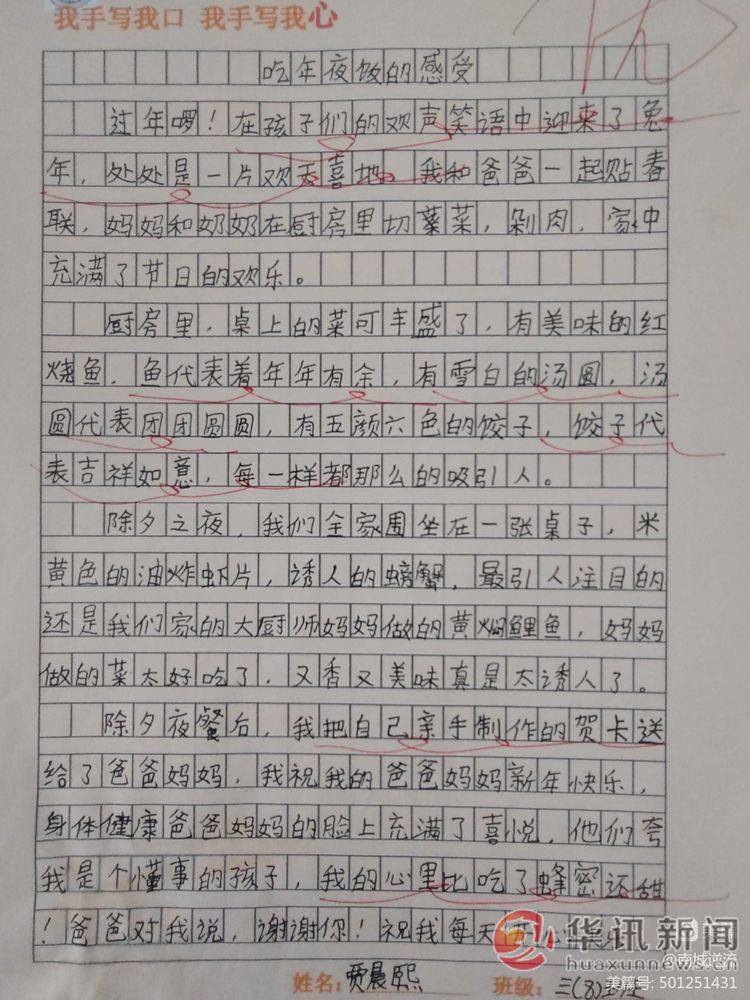 我手写我口 我手写我心
吃年夜饭的感受
过年啰！在孩子们的欢声笑语中迎来了兔
年，处处是一片欢天喜地。我和爸爸一起贴春
联，妈妈和奶奶在厨房里切菜，剁肉，家中
充满了节日的欢乐。
厨房里，桌上的菜可丰盛了，有美味的红
烧鱼，鱼代表着年年有余，有雪白的汤圆，汤
圆代表团团圆圆，有五颜六色的饺子，饺子代
表吉祥如意，每一样都那么的吸引人。
除夕之夜，我们全家围坐在一张桌子，米
黄色的油炸虾片，诱人的螃蟹，最引人注目的
还是我们家的大厨师妈妈做的黄焖鲤鱼，妈妈
做的菜太好吃了，又香又美味真是太诱人了。
除夕夜餐后，我把自己亲手制作的贺卡送
给了爸爸妈妈，我祝我的爸爸妈妈新年快乐，
身体健康爸爸妈妈的脸上充满了喜悦，他们夸
我是个懂事的孩子，我的心里比吃了蜂蜜还甜
！爸爸对我说，谢谢你！祝我每天
华讯新闻
huaxunnews.com
@南城逆流
姓名：贾晨熙 班级：三(8)
美篇号：501251431